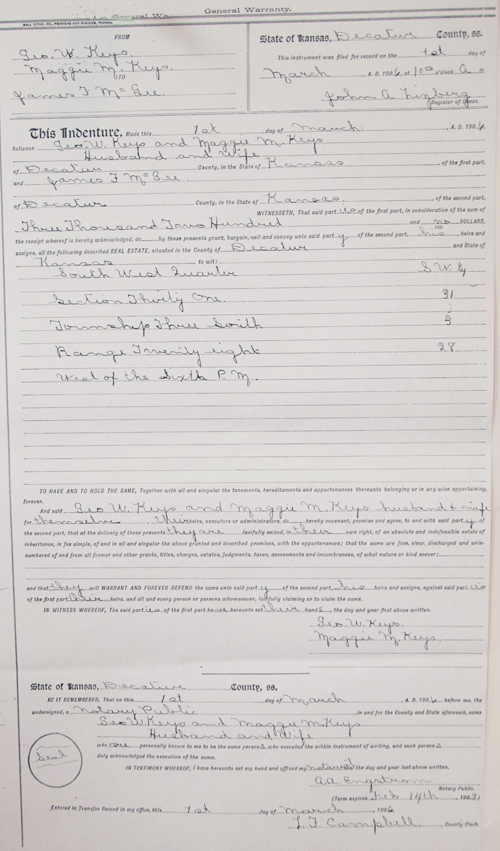 General Warranty.
FROM
Geo. W. Keys.
Maggie M. Keys.
TO
James F McGee
State of Kansas, Decatur County, ss.
This instrument was filed for record on the 1st day of
March A. D. 1906, at 10 o'clock A m
Register of Deeds.
This Indenture, Made this 1st day of March, A. D. 190
between Geo. W. Keys and Maggie M. Keys
Husband and Wife
of Decatur County, in the State of Kansas of the first part,
and James F McGee
of Decatur County, in the State of Kansas. of the second part,
WITNESSETH, That said part ies of the first part, in consideration of the sum of
Three Thousand Two Hundred and no/100 DOLLARS,
the receipt whereof is hereby acknowledged, do by these presents grant, bargain, sell and convey unto said part y of the second part, his heirs and
assigns, all the following described REAL ESTATE, situated in the County of Decatur and State of
Kansas to wit:
South West Quarter S.W. 1/4
Section Thirty One. 31
Township Three South 3
Range Twenty-eight 28
West of the Sixth P. M.
TO HAVE AND TO HOLD THE SAME, Together with all and singular the tenements, hereditaments and appurtenances thereunto belonging or in any wise appertaining,
forever.
And said Geo W. Keys and Maggie M. Keys husband + wife
for themselves their heirs, executors or administrators, do hereby covenant, promise and agree, to and with said part y of
the second part, that at the delivery of these presents they are lawfully seized, in their own right, of an absolute and indefeasible estate of
inheritance, in fee simple, of and in all and singular the above granted and described premises, with the appurtenances; that the same are free, clear, discharged and unin-
cumbered of and from all former and other grants, titles, charges, estates, judgments, taxes, assessments and incumbrances, of what nature or kind soever;
and that they will WARRANT AND FOREVER DEFEND the same unto said part y of the second part, his heirs and assigns, against said part ies
of the first part, their heirs, and all and every person or persons whomsoever, lawfully claiming or to claim the same.
IN WITNESS WHEREOF, The said part ies of the first part have hereunto set their hands, the day and year first above written.
Geo W. Keys.
Maggie M. Keys.
State of Kansas, Decatur County, ss.
BE IT REMEMBERED, That on this 1st day of March, A. D. 190 before me, the
undersigned, a Notary Public in and for the County and State aforesaid, came
Geo W Keys and Maggie M. Keys
Husband and Wife
who are personally known to me to be the same persons, who executed the within instrument of writing, and such persons
duly acknowledged the execution of the same.
Seal
IN TESTIMONY WHEREOF, I have hereunto set my hand and affixed my notarial the day and year last above written.
A.A. Engstrom
Notary Public.
(Term expires Feb 14th 190
Entered in Transfer Record in my office, this 1st day of March 1906
L. F. Campbell County Clerk.